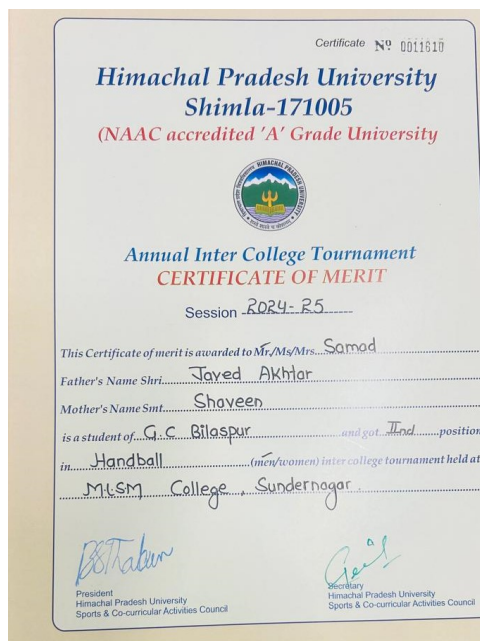 Certificate Nº 0011610
Himachal Pradesh University
Shimla-171005
(NAAC accredited 'A' Grade University
HIMACHAL PRADESH UNIVERSITY
Annual Inter College Tournament
CERTIFICATE OF MERIT
Session 2024-25
This Certificate of merit is awarded to Mr./Ms/Mrs. Samad
Father's Name Shri Javed Akhtar
Mother's Name Smt. Shaveen
is a student of G.C Bilaspur and got IInd position
in Handball (men/women) inter college tournament held at
M.L.S.M College, Sundernagar.
President
Himachal Pradesh University
Sports & Co-curricular Activities Council
Secretary
Himachal Pradesh University
Sports & Co-curricular Activities Council